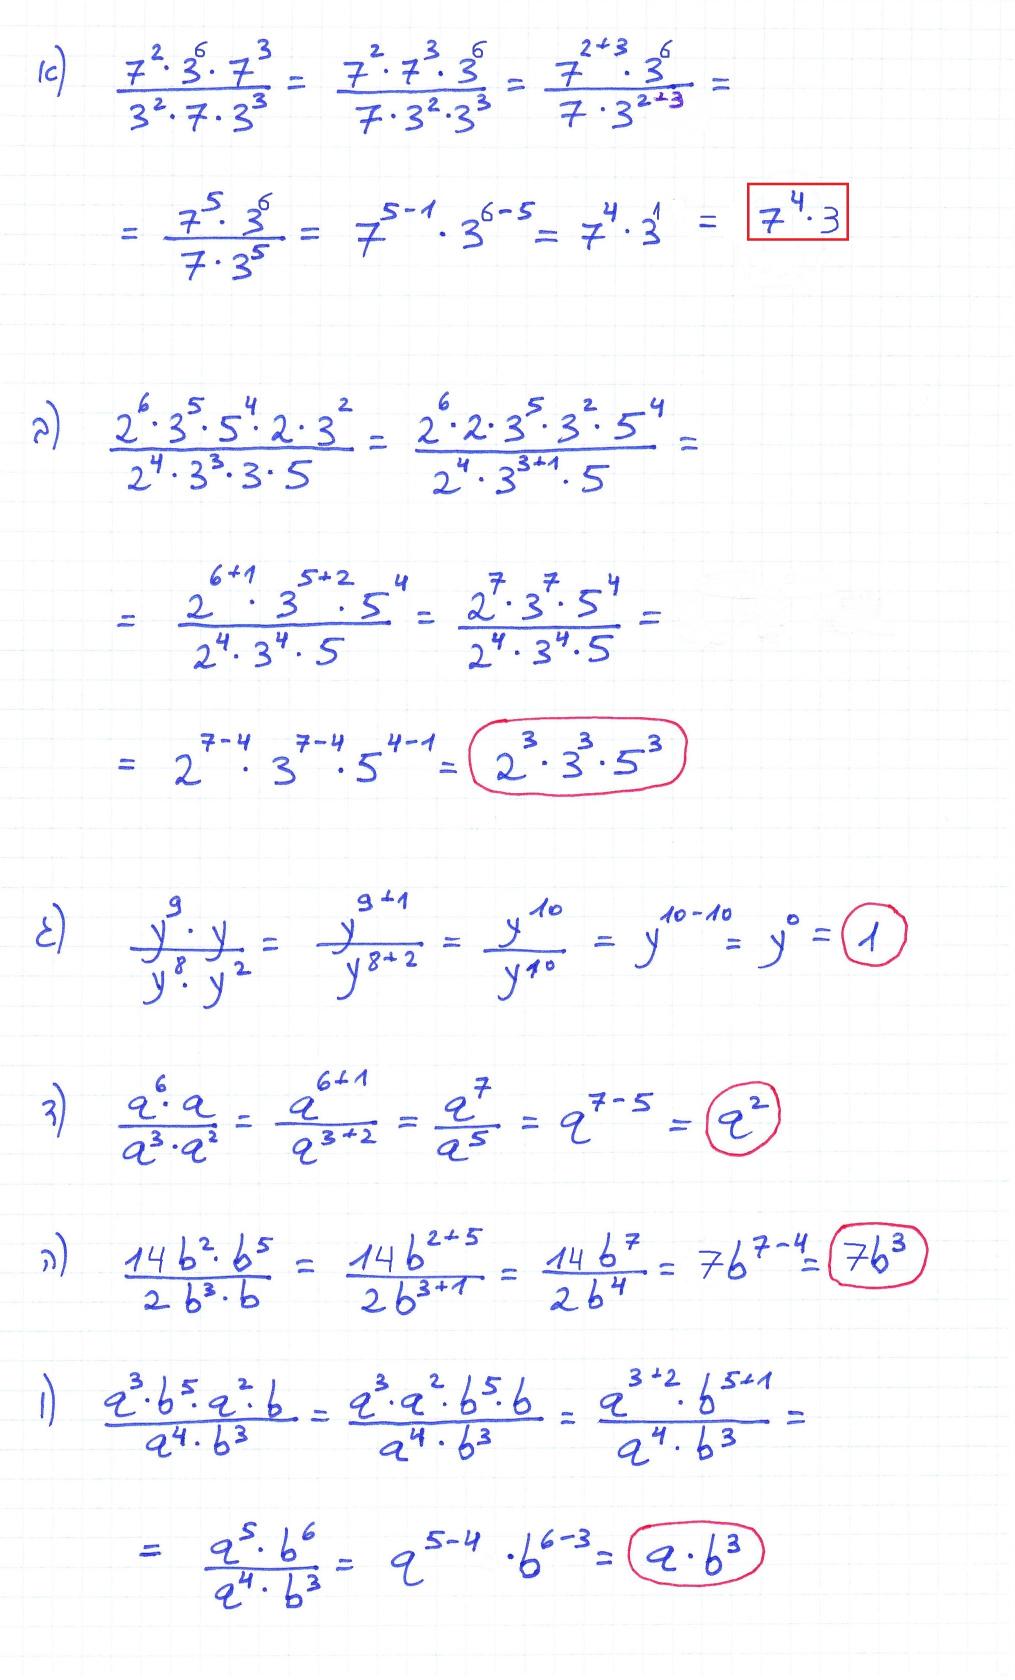 א) (7²·3⁶·7³)/(3²·7·3³) = (7²·7³·3⁶)/(7·3²·3³) = (7²⁺³·3⁶)/(7·3²⁺³) =
= (7⁵·3⁶)/(7·3⁵) = 7⁵⁻¹·3⁶⁻⁵ = 7⁴·3¹ = 7⁴·3
ב) (2⁶·3⁵·5⁴·2·3²)/(2⁴·3³·3·5) = (2⁶·2·3⁵·3²·5⁴)/(2⁴·3³⁺¹·5) =
= (2⁶⁺¹·3⁵⁺²·5⁴)/(2⁴·3⁴·5) = (2⁷·3⁷·5⁴)/(2⁴·3⁴·5) =
= 2⁷⁻⁴·3⁷⁻⁴·5⁴⁻¹ = 2³·3³·5³
ג) (y⁹·y)/(y⁸·y²) = y⁹⁺¹/y⁸⁺² = y¹⁰/y¹⁰ = y¹⁰⁻¹⁰ = y⁰ = 1
ד) (a⁶·a)/(a³·a²) = a⁶⁺¹/a³⁺² = a⁷/a⁵ = a⁷⁻⁵ = a²
ה) (14b²·b⁵)/(2b³·b) = 14b²⁺⁵/2b³⁺¹ = 14b⁷/2b⁴ = 7b⁷⁻⁴ = 7b³
ו) (a³·b⁵·a²·b)/(a⁴·b³) = (a³·a²·b⁵·b)/(a⁴·b³) = (a³⁺²·b⁵⁺¹)/(a⁴·b³) =
= (a⁵·b⁶)/(a⁴·b³) = a⁵⁻⁴·b⁶⁻³ = a·b³